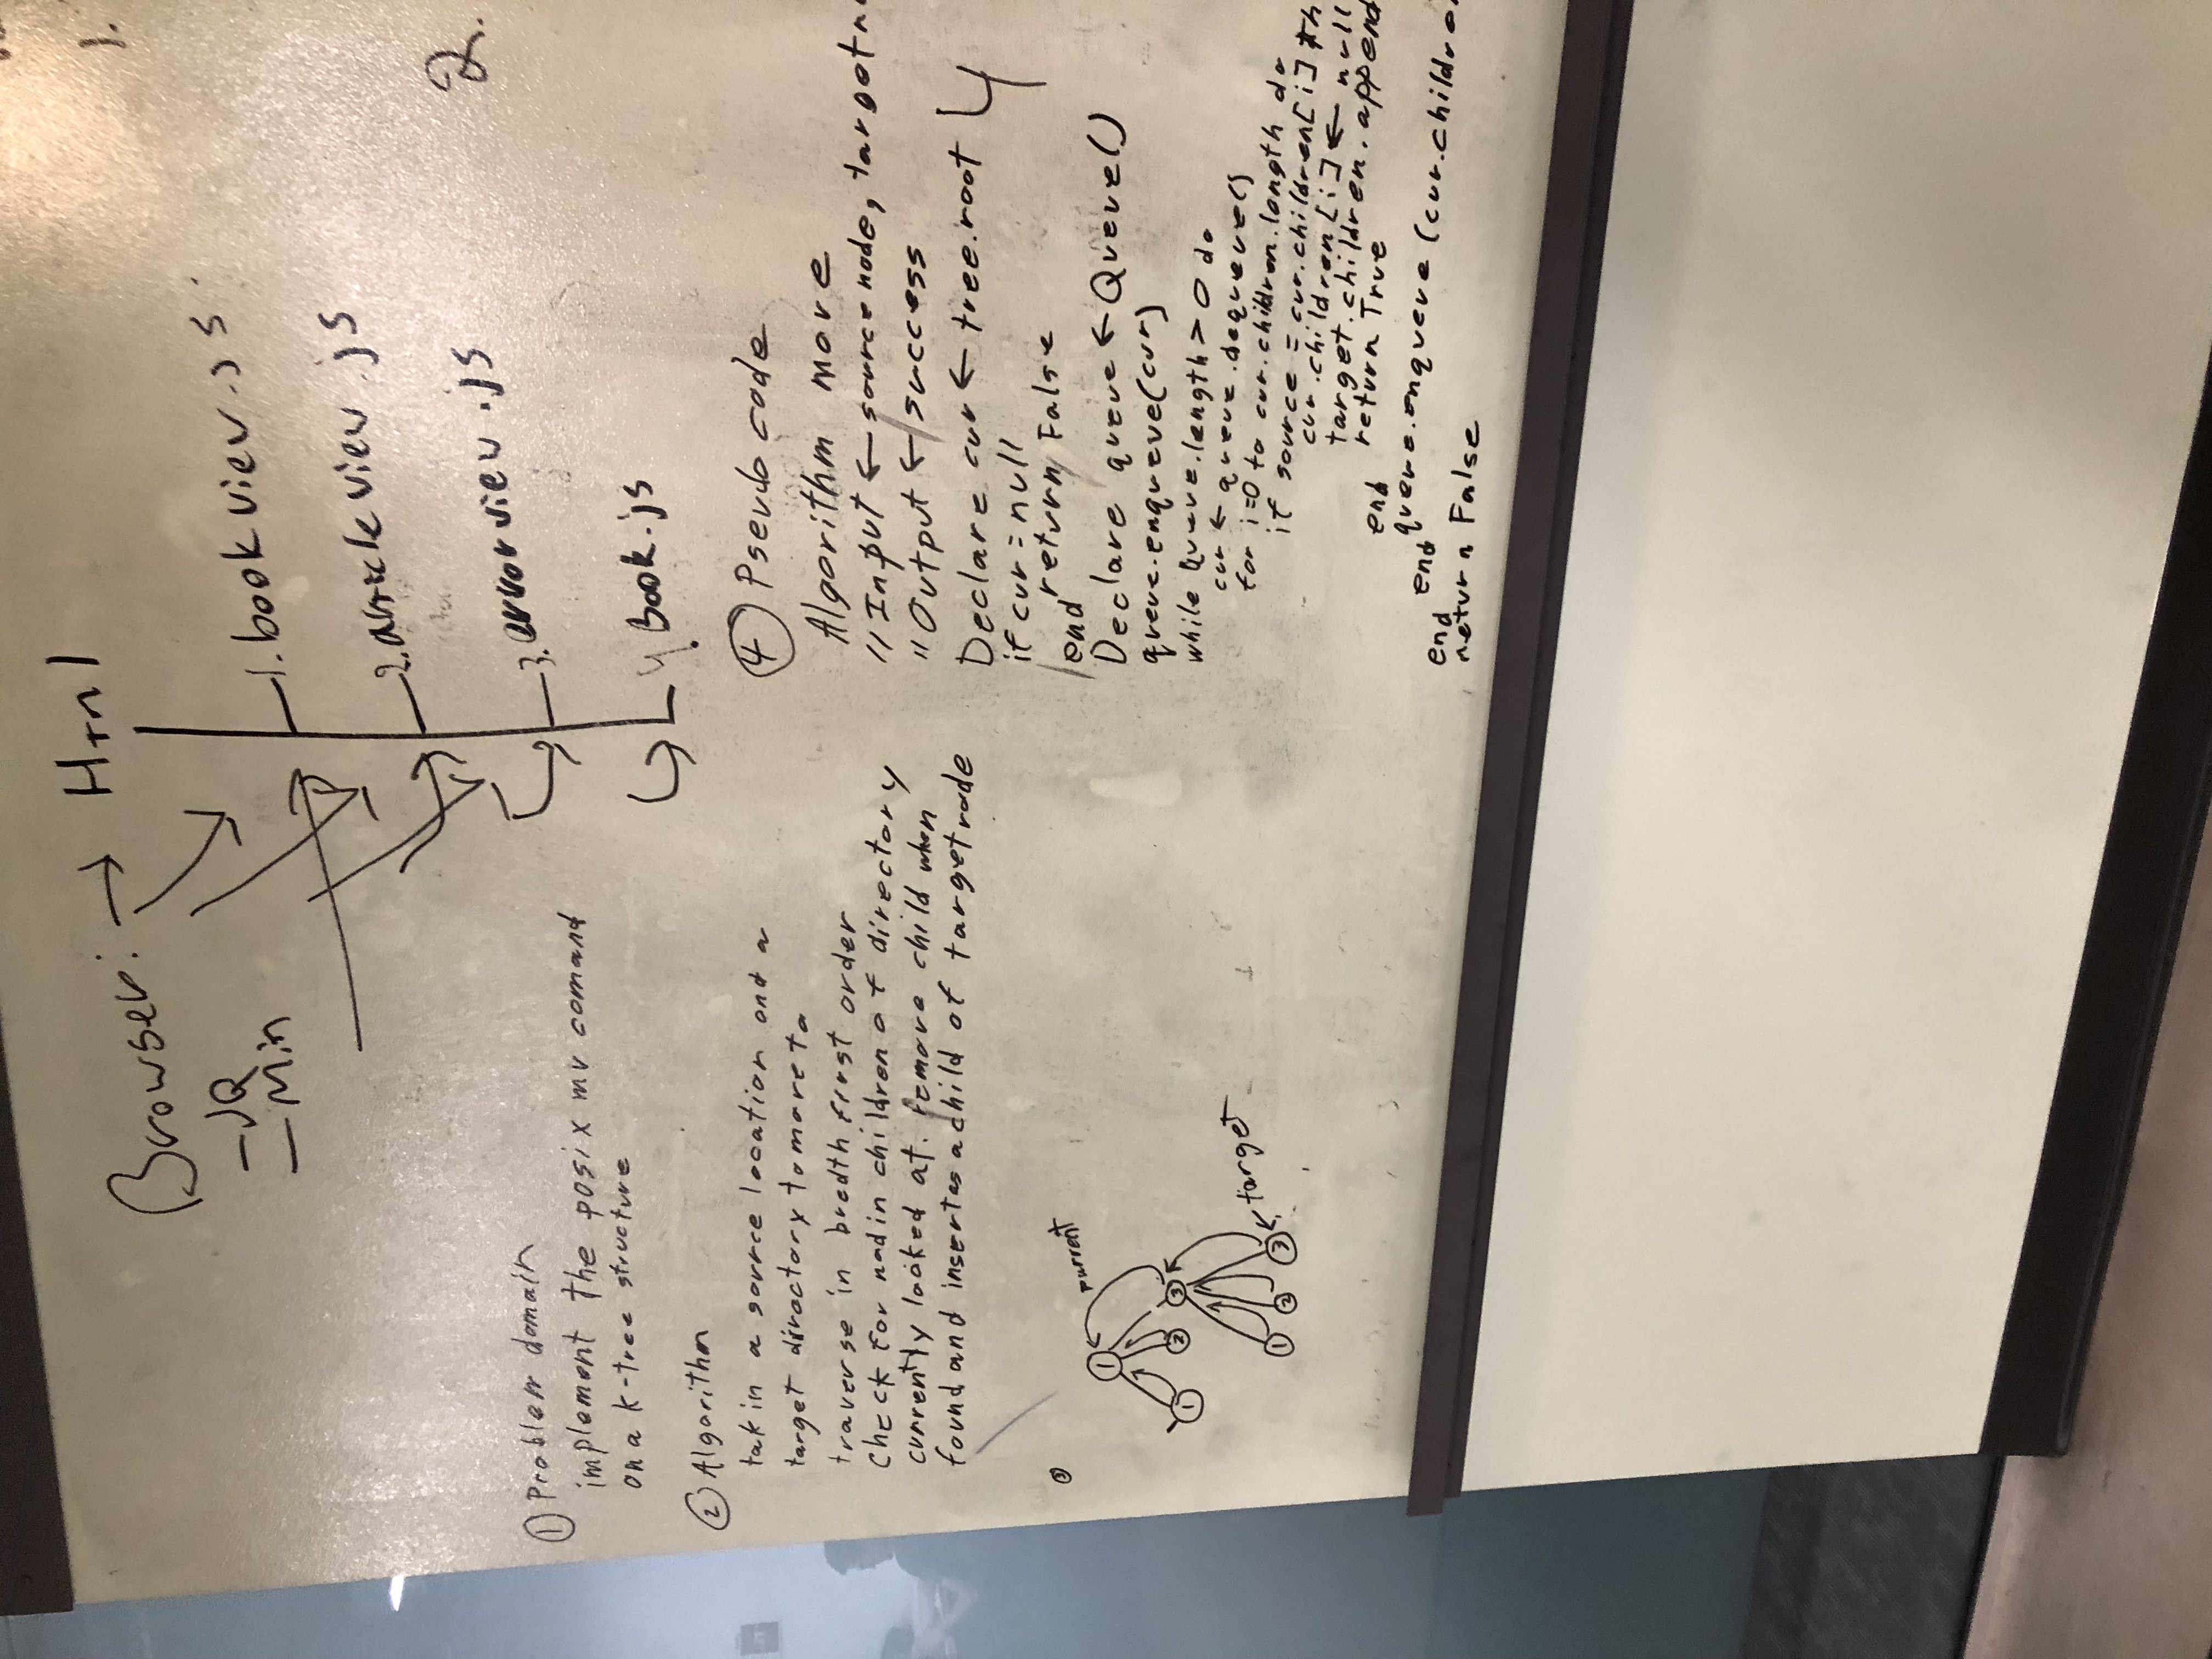 Browser: → Html
- JQ
- Min
1. book view.js
2. article view.js
3. error view.js
4. Book.js
1.
2.
① Problem domain
implement the posix mv comand
on a k-tree structure
② Algorithm
tak in a source location and a
target directory to move to
traverse in bredth first order
Check for nod in children of directory
currently looked at. remove child when
found and insert as a child of target node
③
current
1
1 2 3
1 2 3 ← target
④ Pseudo code
Algorithm move
// Input ← source node, target n
// Output ← success
Declare cur ← tree.root
4
if cur = null
return False
end
Declare queue ← Queue()
queue.enqueue(cur)
while Queue.length > 0 do
cur ← queue.dequeue()
for i=0 to cur.children.length do
if source = cur.children[i] th
cur.children[i] ← null
target.children.append
return True
end
queue.enqueue (cur.childre
end
end
return False